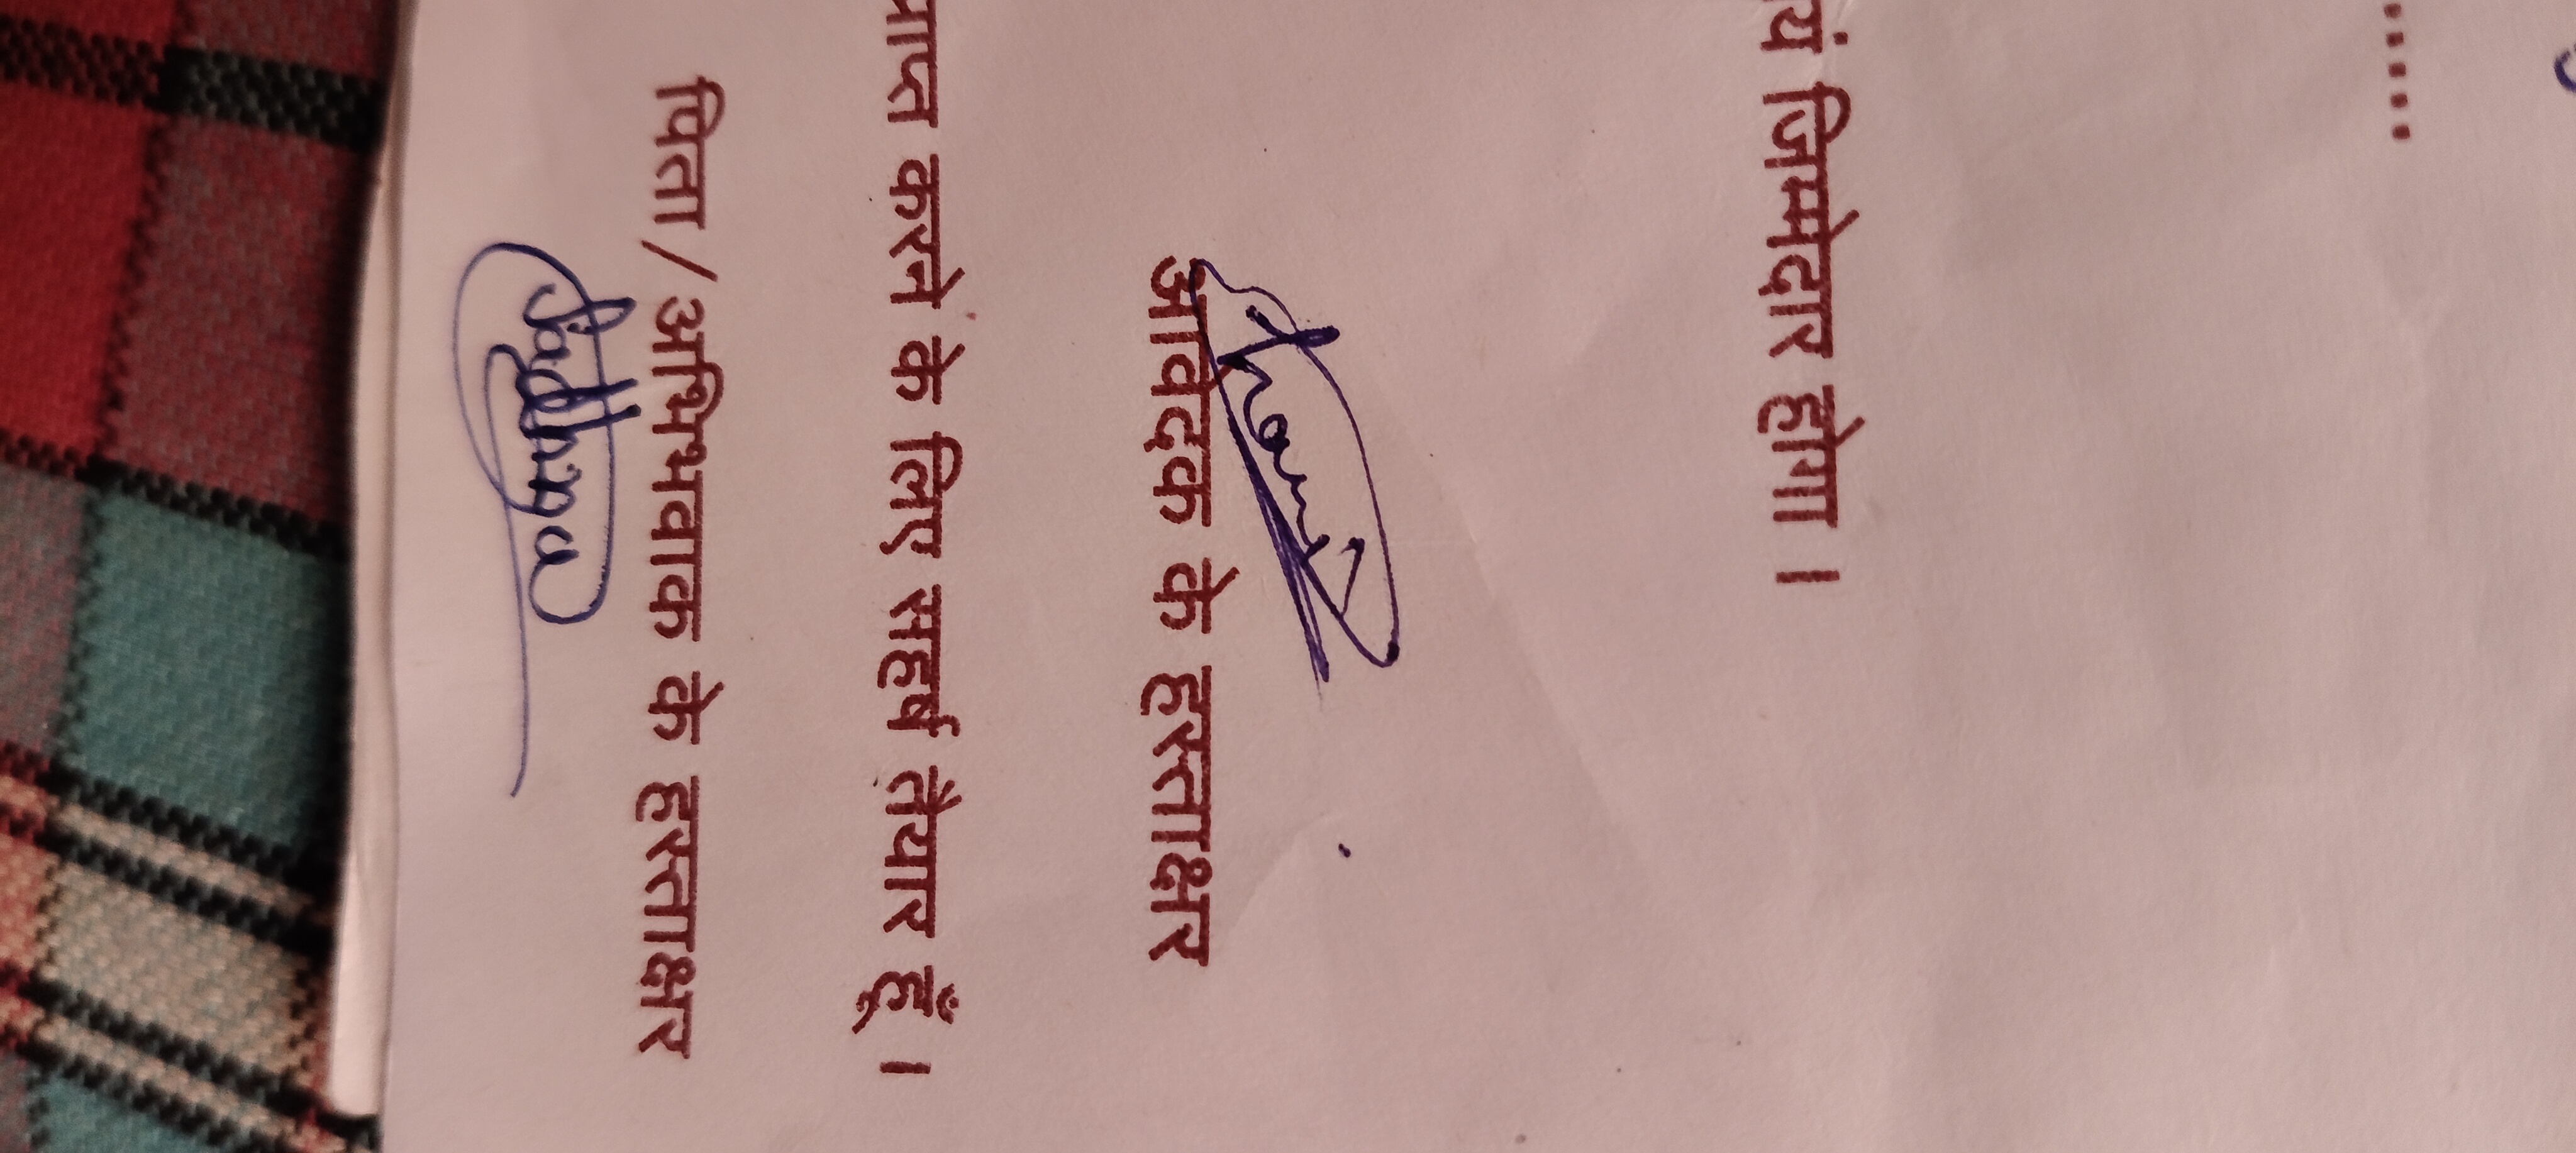 ......
यं जिम्मेदार होगा ।
आवेदक के हस्ताक्षर
प्राप्त करने के लिए सहर्ष तैयार हूँ ।
पिता / अभिभवाक के हस्ताक्षर
Sadhna